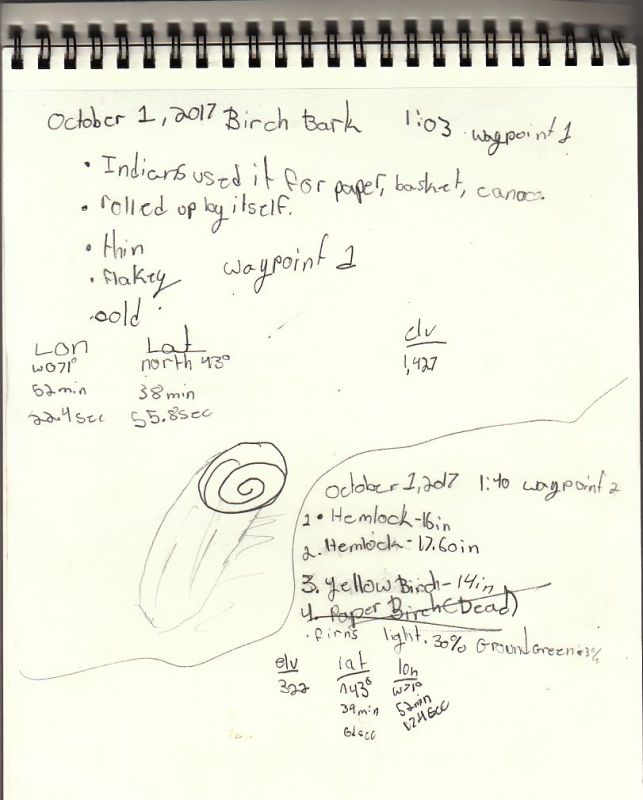 October 1, 2017 Birch Bark 1:03 waypoint 1
• Indians used it for paper, basket, canoo.
• rolled up by itself.
• thin
• flakey waypoint 1
• old
Lon Lat elv
W071° north 43° 1,427
52min 38min
22.4sec 55.8sec
October 1, 2017 1:40 waypoint 2
1 • Hemlock-16in
2. Hemlock-17.60in
3. Yellow Birch-14in
4. Paper Birch (Dead)
• firns light. 30% Ground Green
elv lat lon
322 N43° W71°
39min 52min